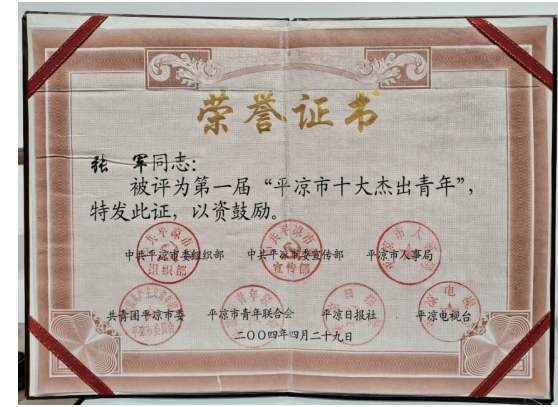 荣誉证书
张 军同志：
被评为第一届“平凉市十大杰出青年”，
特发此证，以资鼓励。
中共平凉市委组织部 中共平凉市委宣传部 平凉市人事局
共青团平凉市委 平凉市青年联合会 平凉日报社 平凉电视台
二〇〇四年四月二十九日